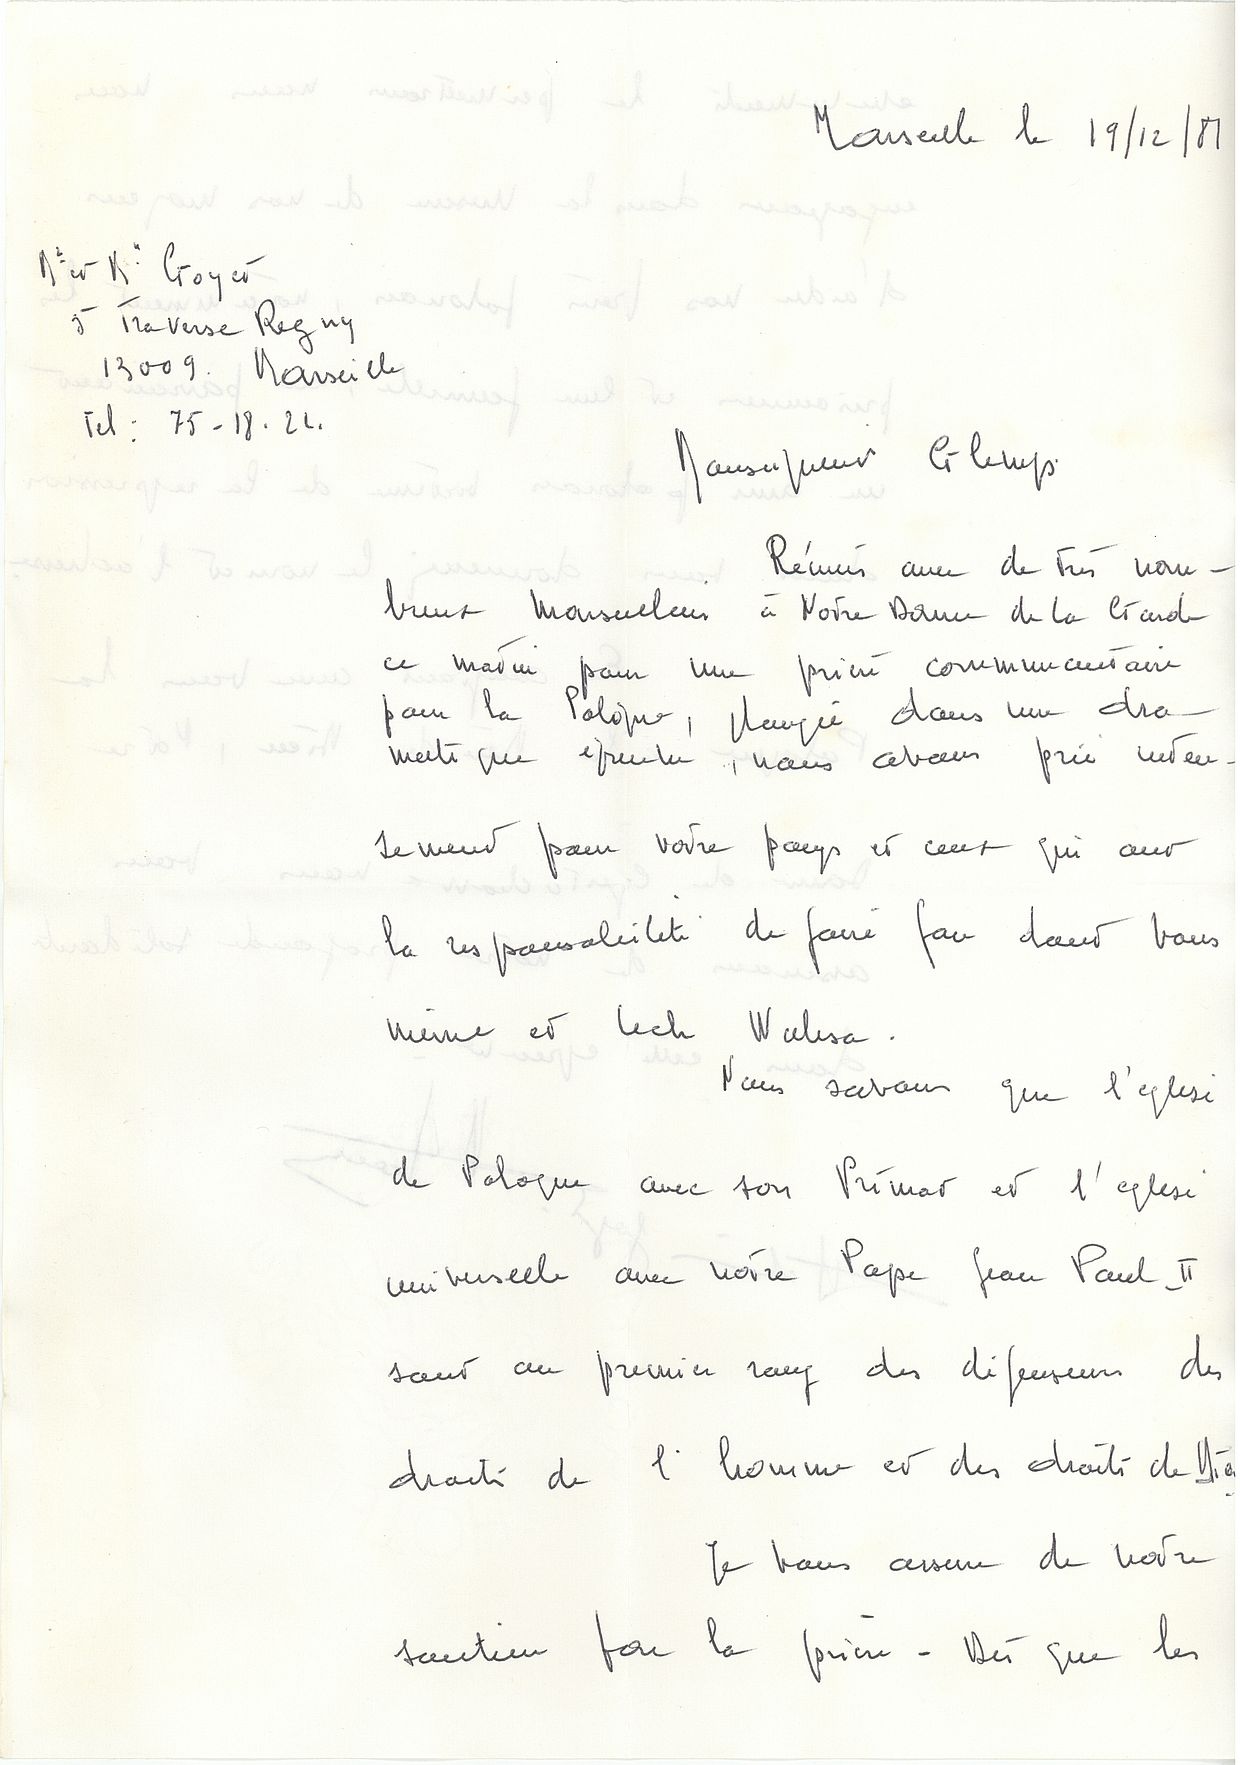 Marseille le 19/12/81
Mr et Me Goyet
5 Traverse Regny
13009. Marseille
Tel: 75-18-22.
Monseigneur Glemp.
Réunis avec de très nom-
breux Marseillais à Notre Dame de la Garde
ce matin pour une prière communautaire
pour la Pologne, plongée dans une dra-
matique épreuve, nous avons prié inten-
sement pour votre pays et ceux qui ont
la responsabilité de faire face dont vous
même et Lech Walesa.
Nous savons que l'eglise
de Pologne avec son Primat et l'eglise
universelle avec notre Pape Jean Paul II
sont au premier rang des défenseurs des
droits de l'homme et des droits de
Je vous assure de notre
soutien par la prière - Dès que les